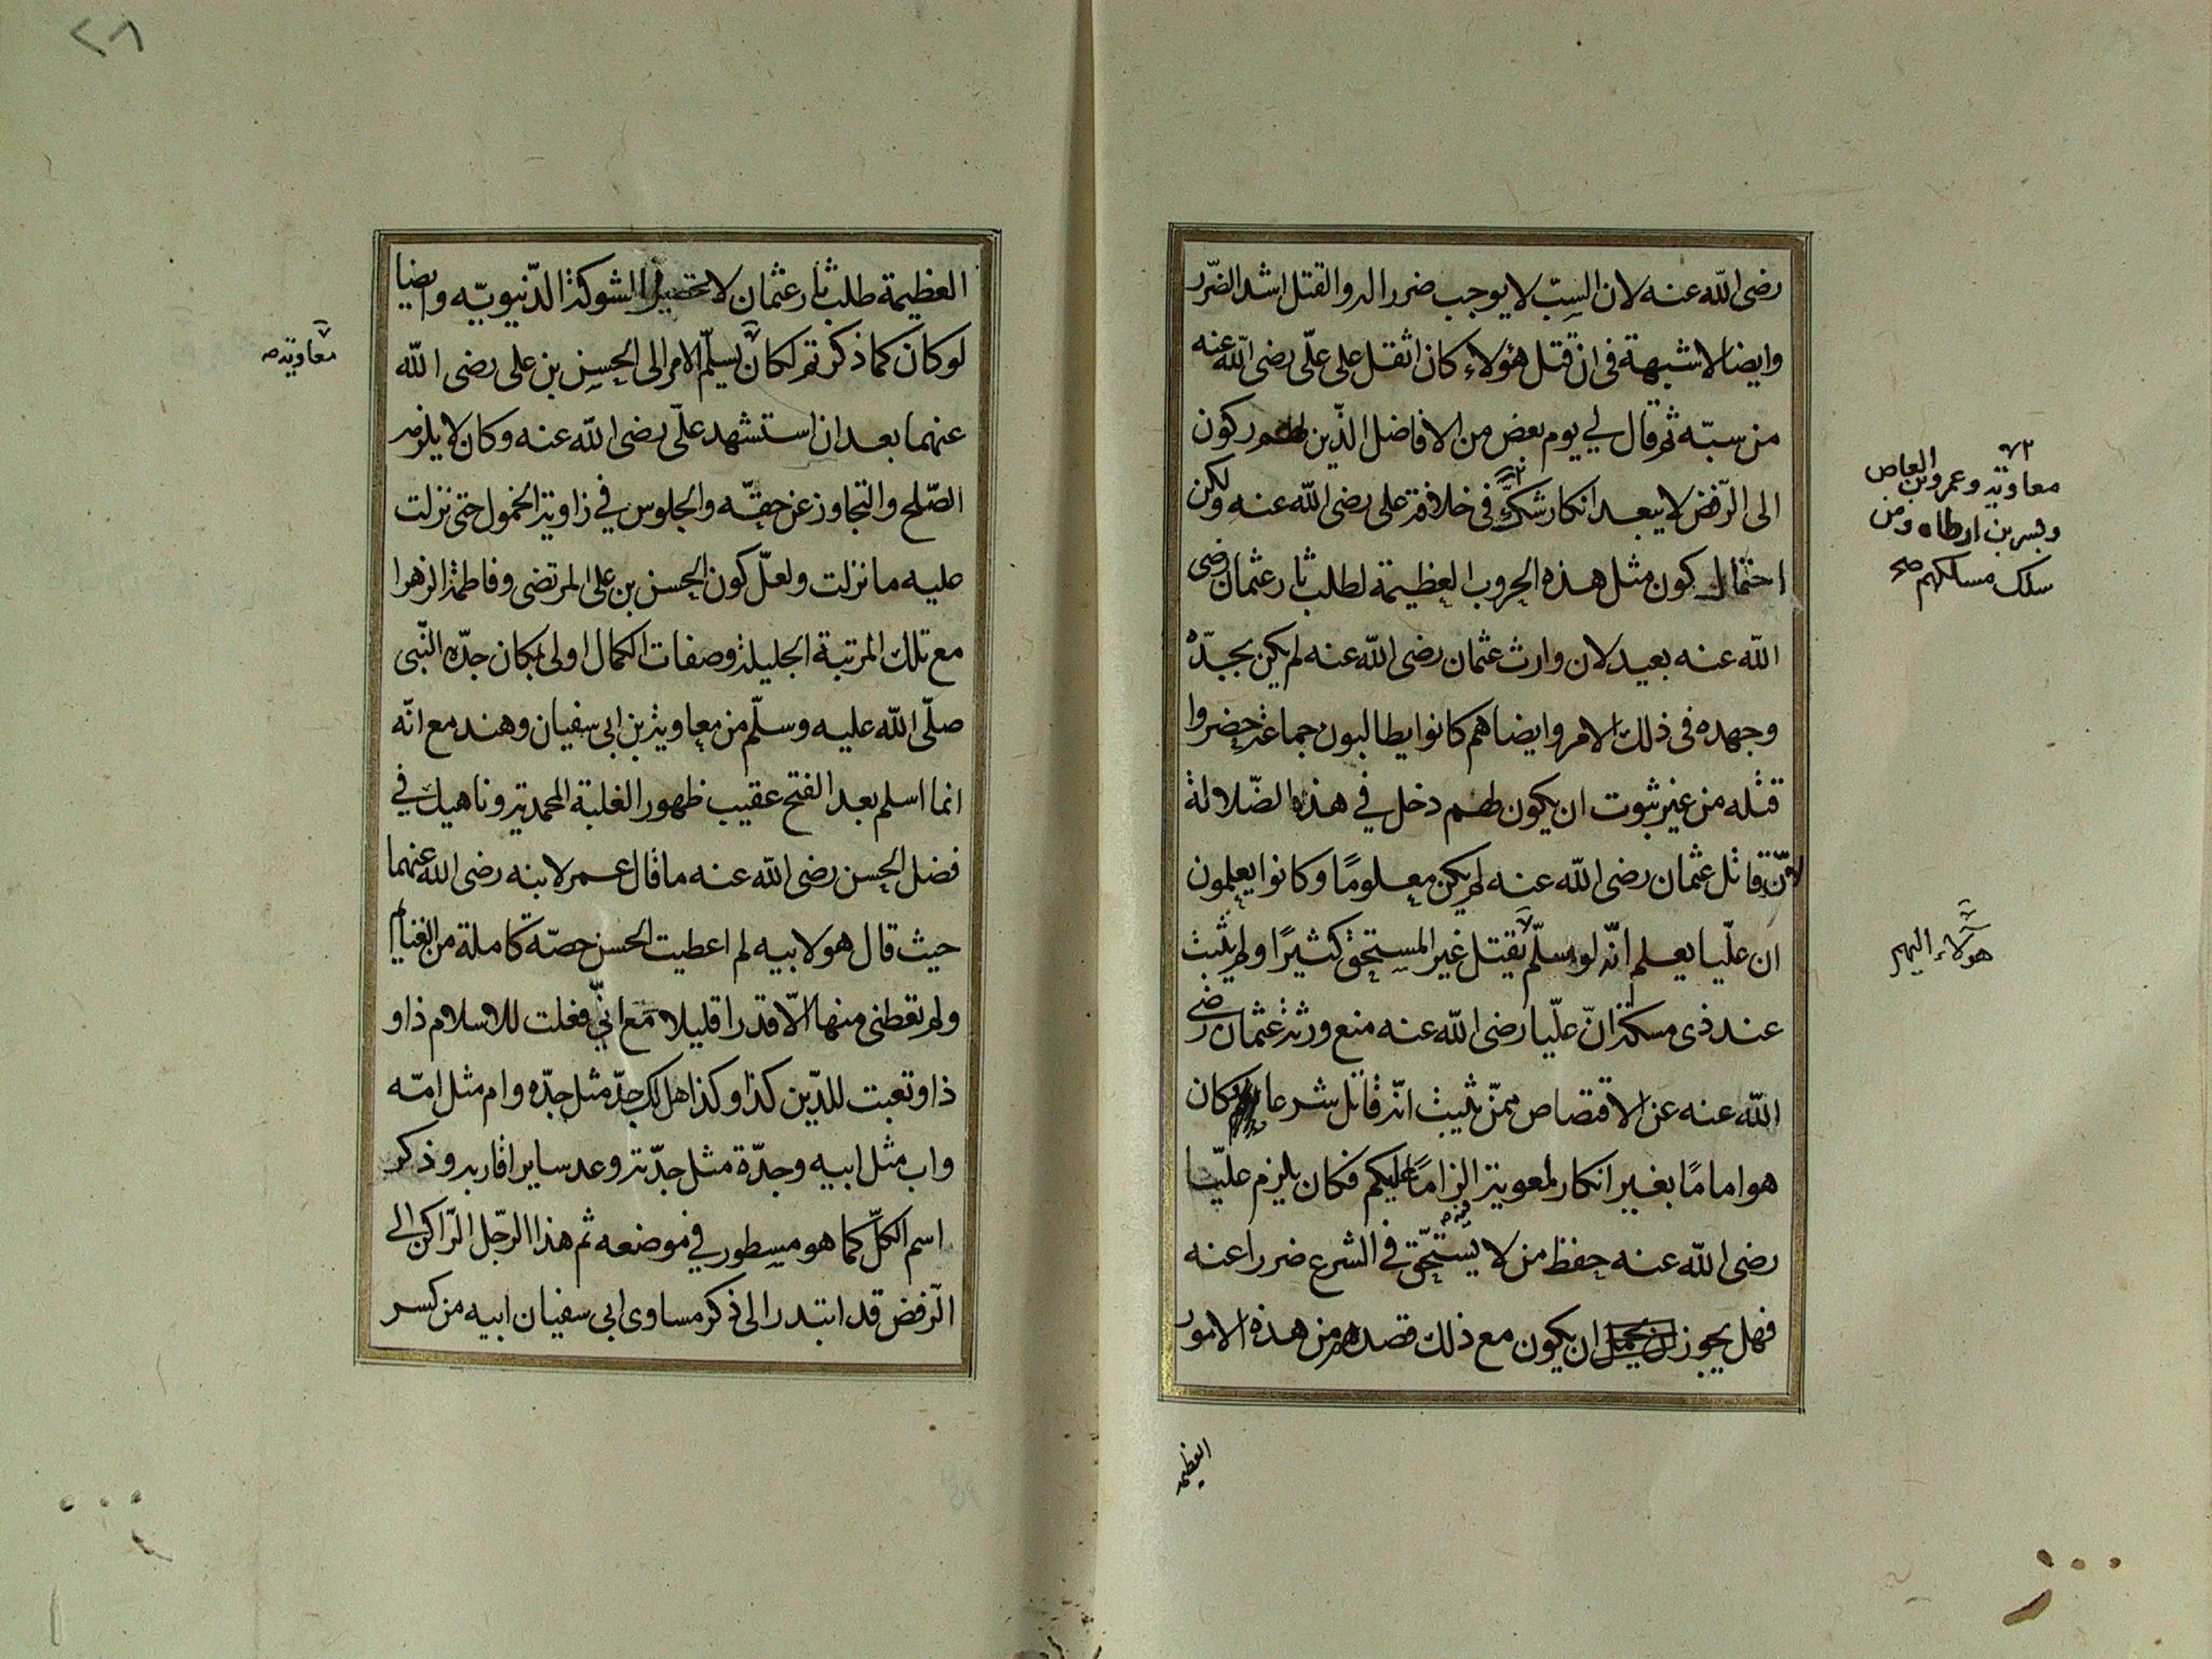 رضى الله عنه لان السبّ لا يوجب ضررا له والقتل اشد الضّرر
وايضا لا شبهة فى انّ قتل هؤلاء كان اثقل على علّى رضى الله عنه
من سبّه ثم قال لى يوم بعض من الافاضل الذّين لهم ركون
الى الرّفض لا يبعد انكار شكّ فى خلافة على رضى الله عنه ولكن
احتمال كون مثل هذه الحروب العظيمة لطلب ثار عثمان رضى
الله عنه بعيد لان وارث عثمان رضى الله عنه لم يكن بجدّه
وجهده فى ذلك الامر وايضا هم كانوا يطالبون جماعة حضروا
قتله من غير ثبوت ان يكون لهم دخل فى هذه الضّلالة
لانّ قاتل عثمان رضى الله عنه لم يكن معلومًا وكانوا يعلمون
ان عليّا يعلم انّه لو سلّم يقتل غير المستحق كثيرًا ولم يثبث
عند ذى مسكة انّ عليّا رضى الله عنه منع ورثة عثمان رضى
الله عنه عن الاقتصاص ممّن يثبث انّه قاتل شرعا كان
هو امامًا بغير انكار لمعوية الزامًا عليكم فكان يلزم عليّا
رضى الله عنه حفظ من لا يستحّق فى الشرع ضررا عنه
فهل يجوز ان يكون مع ذلك قصدهم من هذه الامور
معاوية وعمرو بن العاص
وبسر بن ارطاه ومن
سلك مسلكهم صح
هولاء اليهم
العظيمه
٢٨
العظيمة طلب ثار عثمان لا تحصيل الشوكة الدّنيويّه وايضا
لو كان كما ذكرتم لكان يسلّم الامر الى الحسن بن على رضى الله
عنهما بعد ان استشهد علّى رضى الله عنه وكان لا يلزمه
الصّلح والتجاوز عن حقّه والجلوس فى زاوية الخمول حتى نزلت
عليه ما نزلت ولعلّ كون الحسن بن على المرتضى وفاطمة الزهرا
مع تلك المرتبة الجليلة وصفات الكمال اولى بمكان جدّه النّبى
صلّى الله عليه وسلّم من معاوية بن ابى سفيان وهند مع انّه
انما اسلم بعد الفتح عقيب ظهور الغلبة المحمدية وناهيك فى
فضل الحسن رضى الله عنه ما قال عمر لابنه رضى الله عنهما
حيث قال هو لابيه لم اعطيت الحسن حصّة كاملة من الغنايم
ولم تعطنى منها الّا قدرا قليلا مع انّى فعلت للاسلام ذا و
ذا وتعبت للدّين كذا وكذا هل لك جدّ مثل جدّه وام مثل امّه
واب مثل ابيه وجدّة مثل جدّته وعد ساير اقاربه وذكر
اسم الكلّ كما هو مسطور فى موضعه ثم هذا الرجّل الرّاكن الى
الرّفض قد ابتدر الى ذكر مساوى ابى سفيان ابيه من كسر
معاوية